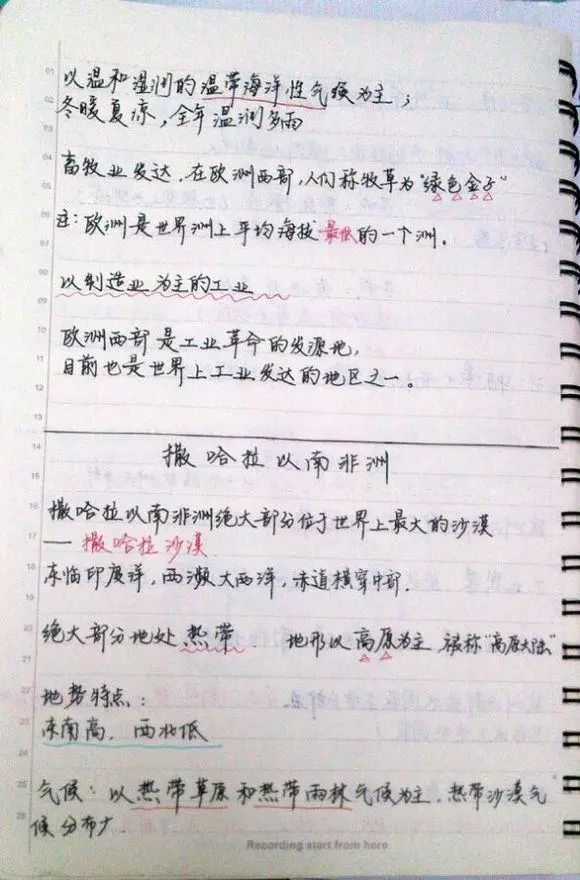 以温和湿润的温带海洋性气候为主；
冬暖夏凉，全年温润多雨
畜牧业发达，在欧洲西部，人们称牧草为“绿色金子”
注：欧洲是世界洲上平均海拔最低的一个洲。
以制造业为主的工业
欧洲西部是工业革命的发源地，
目前也是世界上工业发达的地区之一
撒哈拉以南非洲
撒哈拉以南非洲绝大部分位于世界上最大的沙漠
— 撒哈拉沙漠
东临印度洋，西濒大西洋，赤道横穿中部.
绝大部分地处热带. 地形以高原为主 被称“高原大陆”
地势特点：
东南高，西北低
气候：以热带草原和热带雨林气候为主. 热带沙漠气
候分布少
Recording start from here